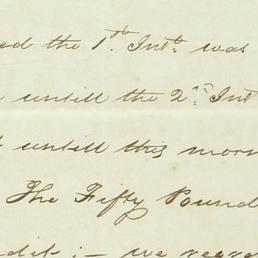 ed the 1st. Inst. was
untill the 2nd. Inst
untill this morn
The Fifty Pound
dit; - we